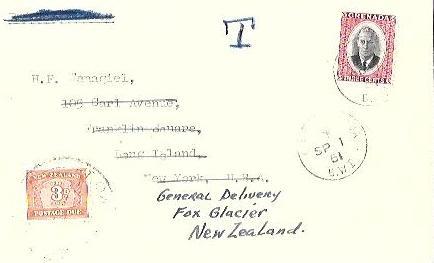 T
GRENADA
THREE CENTS
H.F.
105 Carl Avenue,
Franklin Square,
Long Island,
New York, U.S.A.
SP 1
61
B.W.I.
NEW ZEALAND
3D
POSTAGE DUE
General Delivery
Fox Glacier
New Zealand.